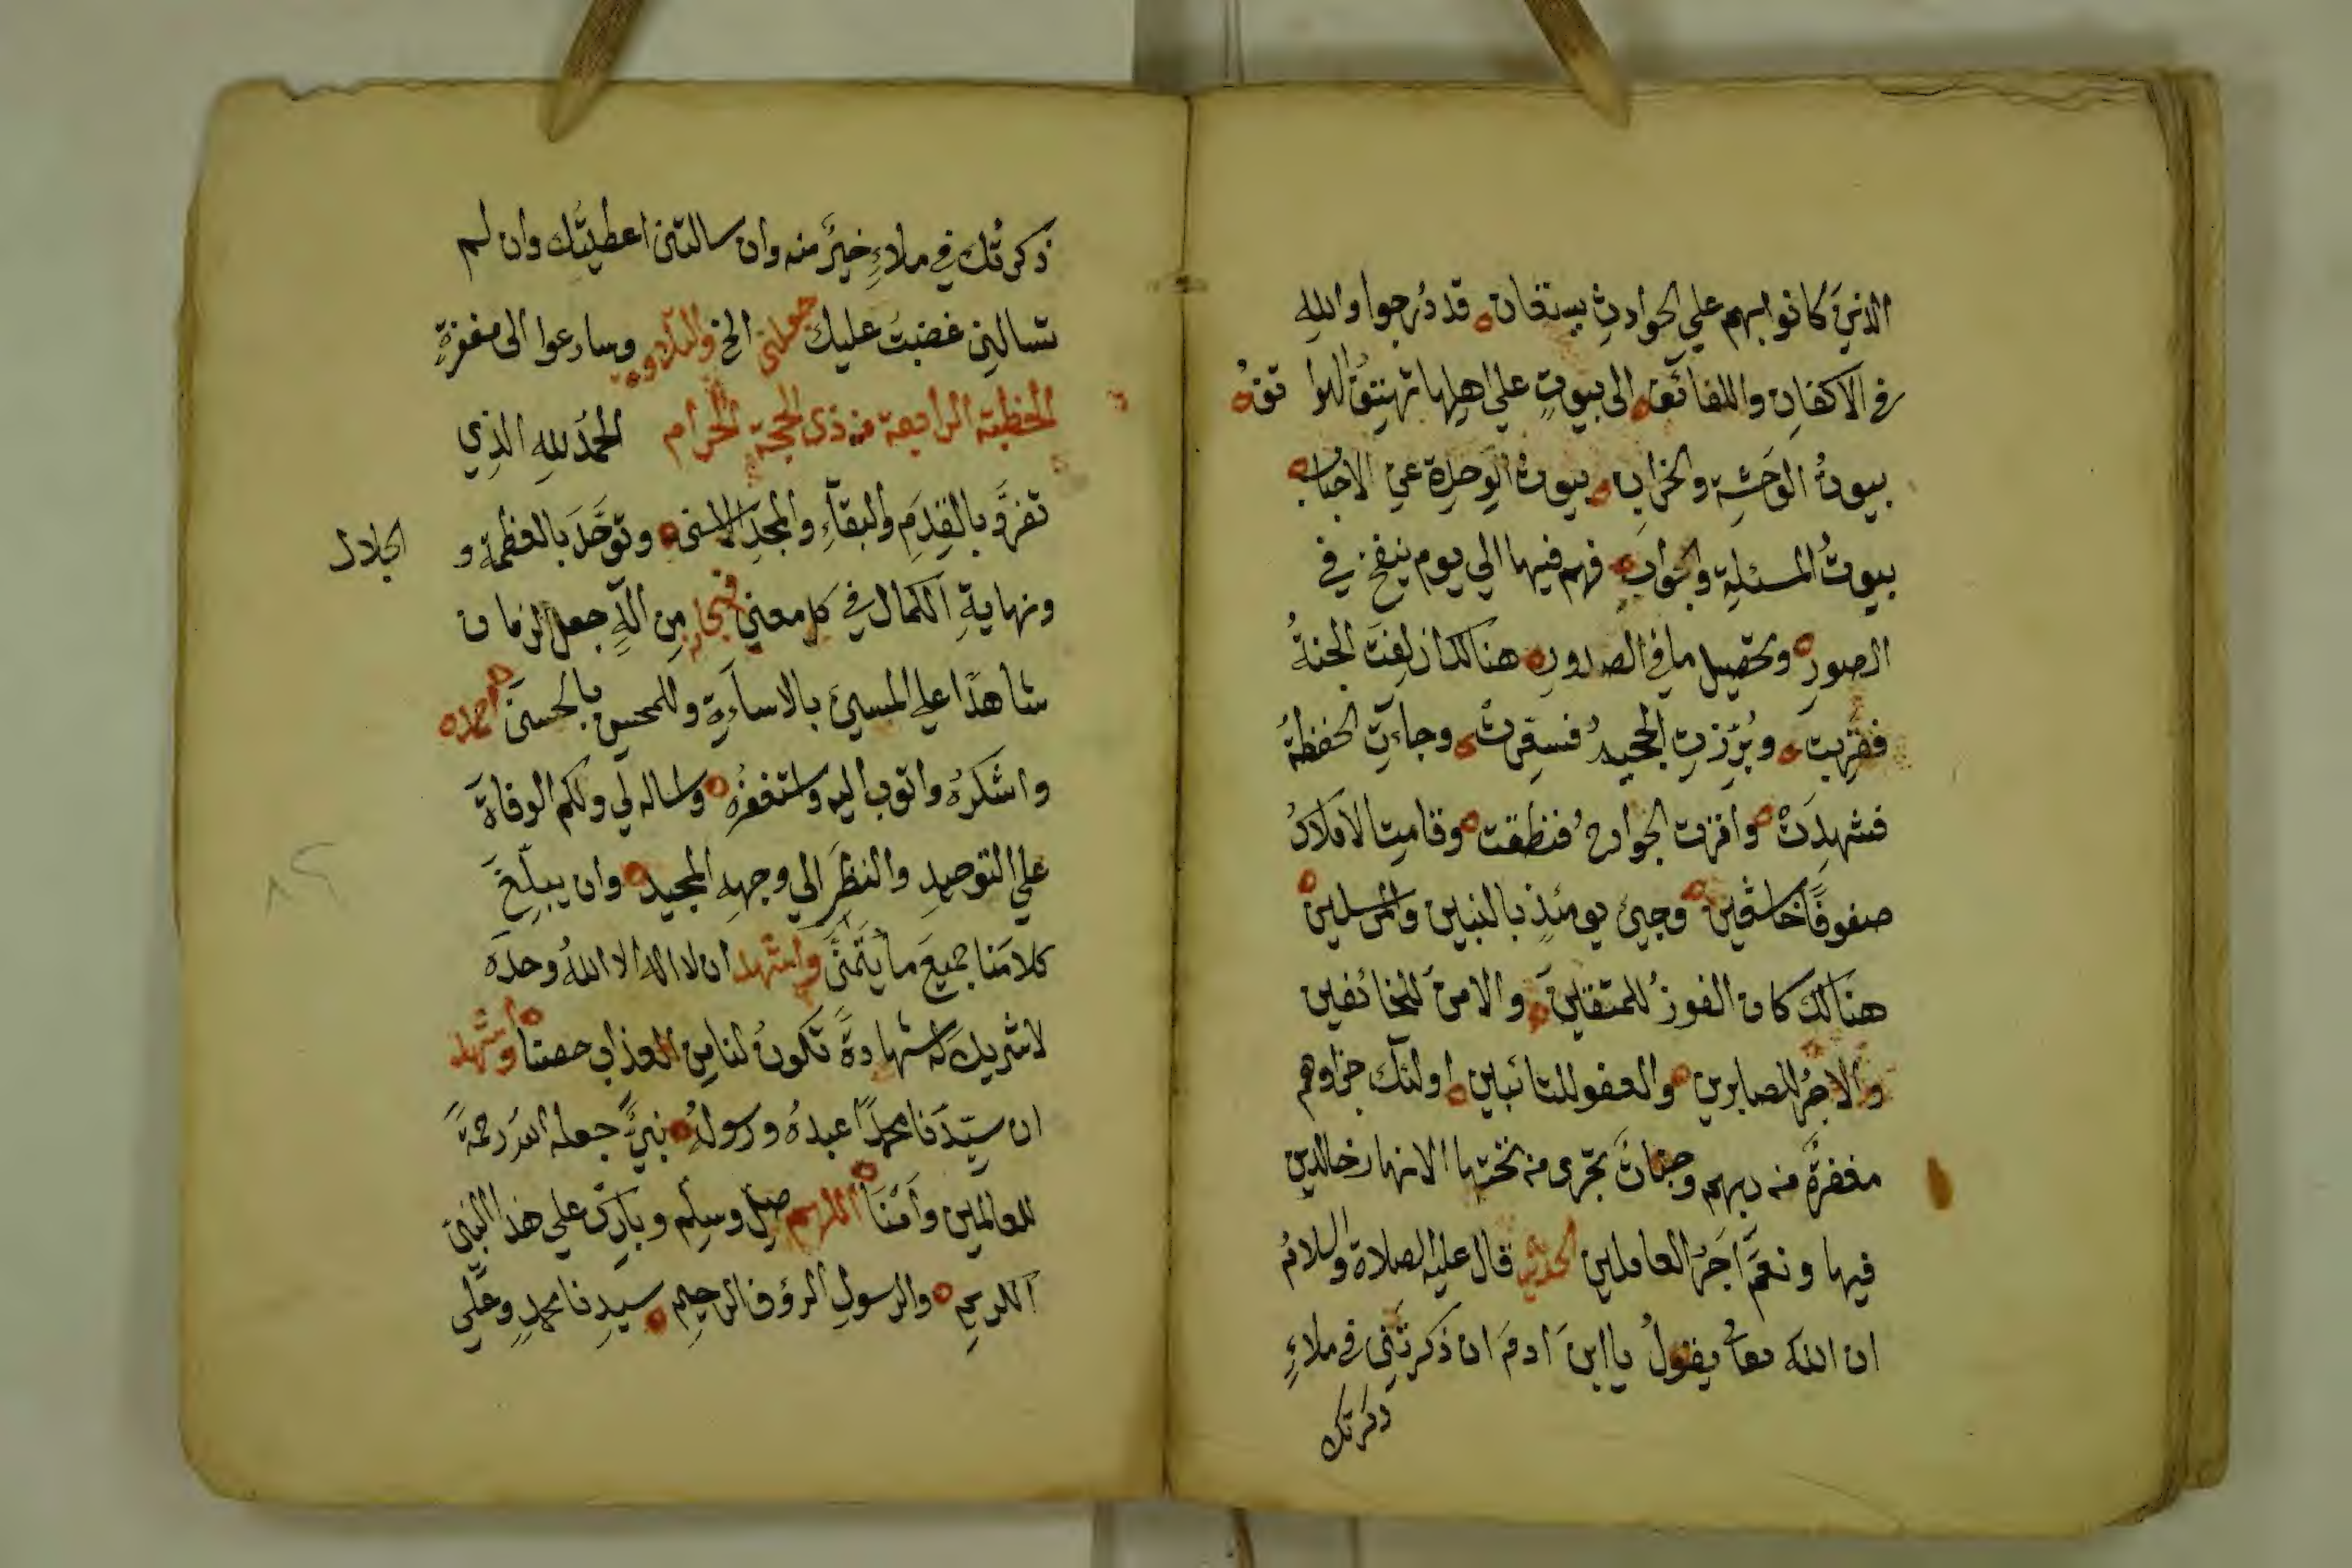 الذينَ كانوا بهم علي الحوادثِ يستعان قد دُرجوا واللهِ
في الاكفانِ واللفائَف الى بيوتٍ علي اهلها
بيوتُ الوَحشةِ والخرابِ بيوتُ الوَحدةِ عنِ الاحبابِ
بيوتُ المسئلةِ والجوابِ فهم فيها الي يوم ينفخ في
الصورِ وتحصيل ما في الصدورِ هنالك ازلِفتَ الجنةُ
فقرِّبت وبُرِّزتِ الجحيمُ فسعِّرتْ وجاءتِ الحفظةُ
فشهدَتْ واقرت الجوارحُ فنطقت وقامت الاملاكُ
صفوفًا خاشعين وجيئ يومئذٍ بالنبين والمرسلين
هنالك كان الفوزُ للمتقينَ والامنُ للخائفين
والاجرُ للصابرين والعفو للتائبين اولئك جزاوهم
مغفرةٌ من ربهم وجناتٌ تجرى من تحتها الانهار خالدين
فيها ونعمَ اَجرُ العاملين الحديث قال عليه الصلاة والسلامُ
ان الله تعالى يقولُ يا ابنَ ادمَ ان ذكرتَنى في ملاءٍ
ذكرتك
ذكرتُك في ملاءٍ خيرٌ منه وان سالتنى اعطيتُك وان لم
تسالنِى غضبتُ عليك جعلنى الخ والتلاوة وسارعوا الى مغفرةٍ
الخطبة الرابعة من ذى الحجة الحرام الحمدُ للهِ الذِي
تفرَّد بالقِدَمِ والبقآءِ والمجدِ الاسنى وتوَحَّدَ بالعظمةِ و
الجلال
ونهايةِ الكمال في كل معنى فسبحانه مِن الٓهٍ جعل الزمان
شاهدًا علي المسيئ بالاساَءةِ وللمحسنِ بالحسنىَ احمده
واشكرُه واتوب اليه واستغفرُه واساله لي ولكم الوفاةَ
علي التوحيدِ والنظَرِ الي وجههِ المجيد وان يبلّغَ
كلامَنا جميعَ ما يتَمنَّى واشهد ان لا اله الا اللهُ وحدَه
لا شريك له شهادةً تكونُ لنا مِن العذاب حصنًا واشهد
ان سيّدَنا محمدًا عبدُه ورسولُه نبيٌّ جعله اللهُ رحمةً
للعالمين واَمْنَا اللهم صلِّ وسلِّم وبارك علي هذا النبىِّ
الكريم والرسولِ الرؤف الرحيم سيدِنا محمدٍ وعَلَي